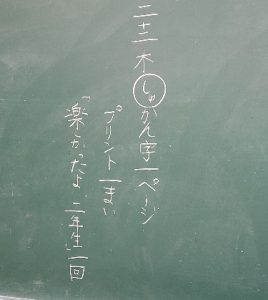 二十三 木 しゅ かん字 一ページ
プリント 一まい
「楽しかったよ、二年生」一回